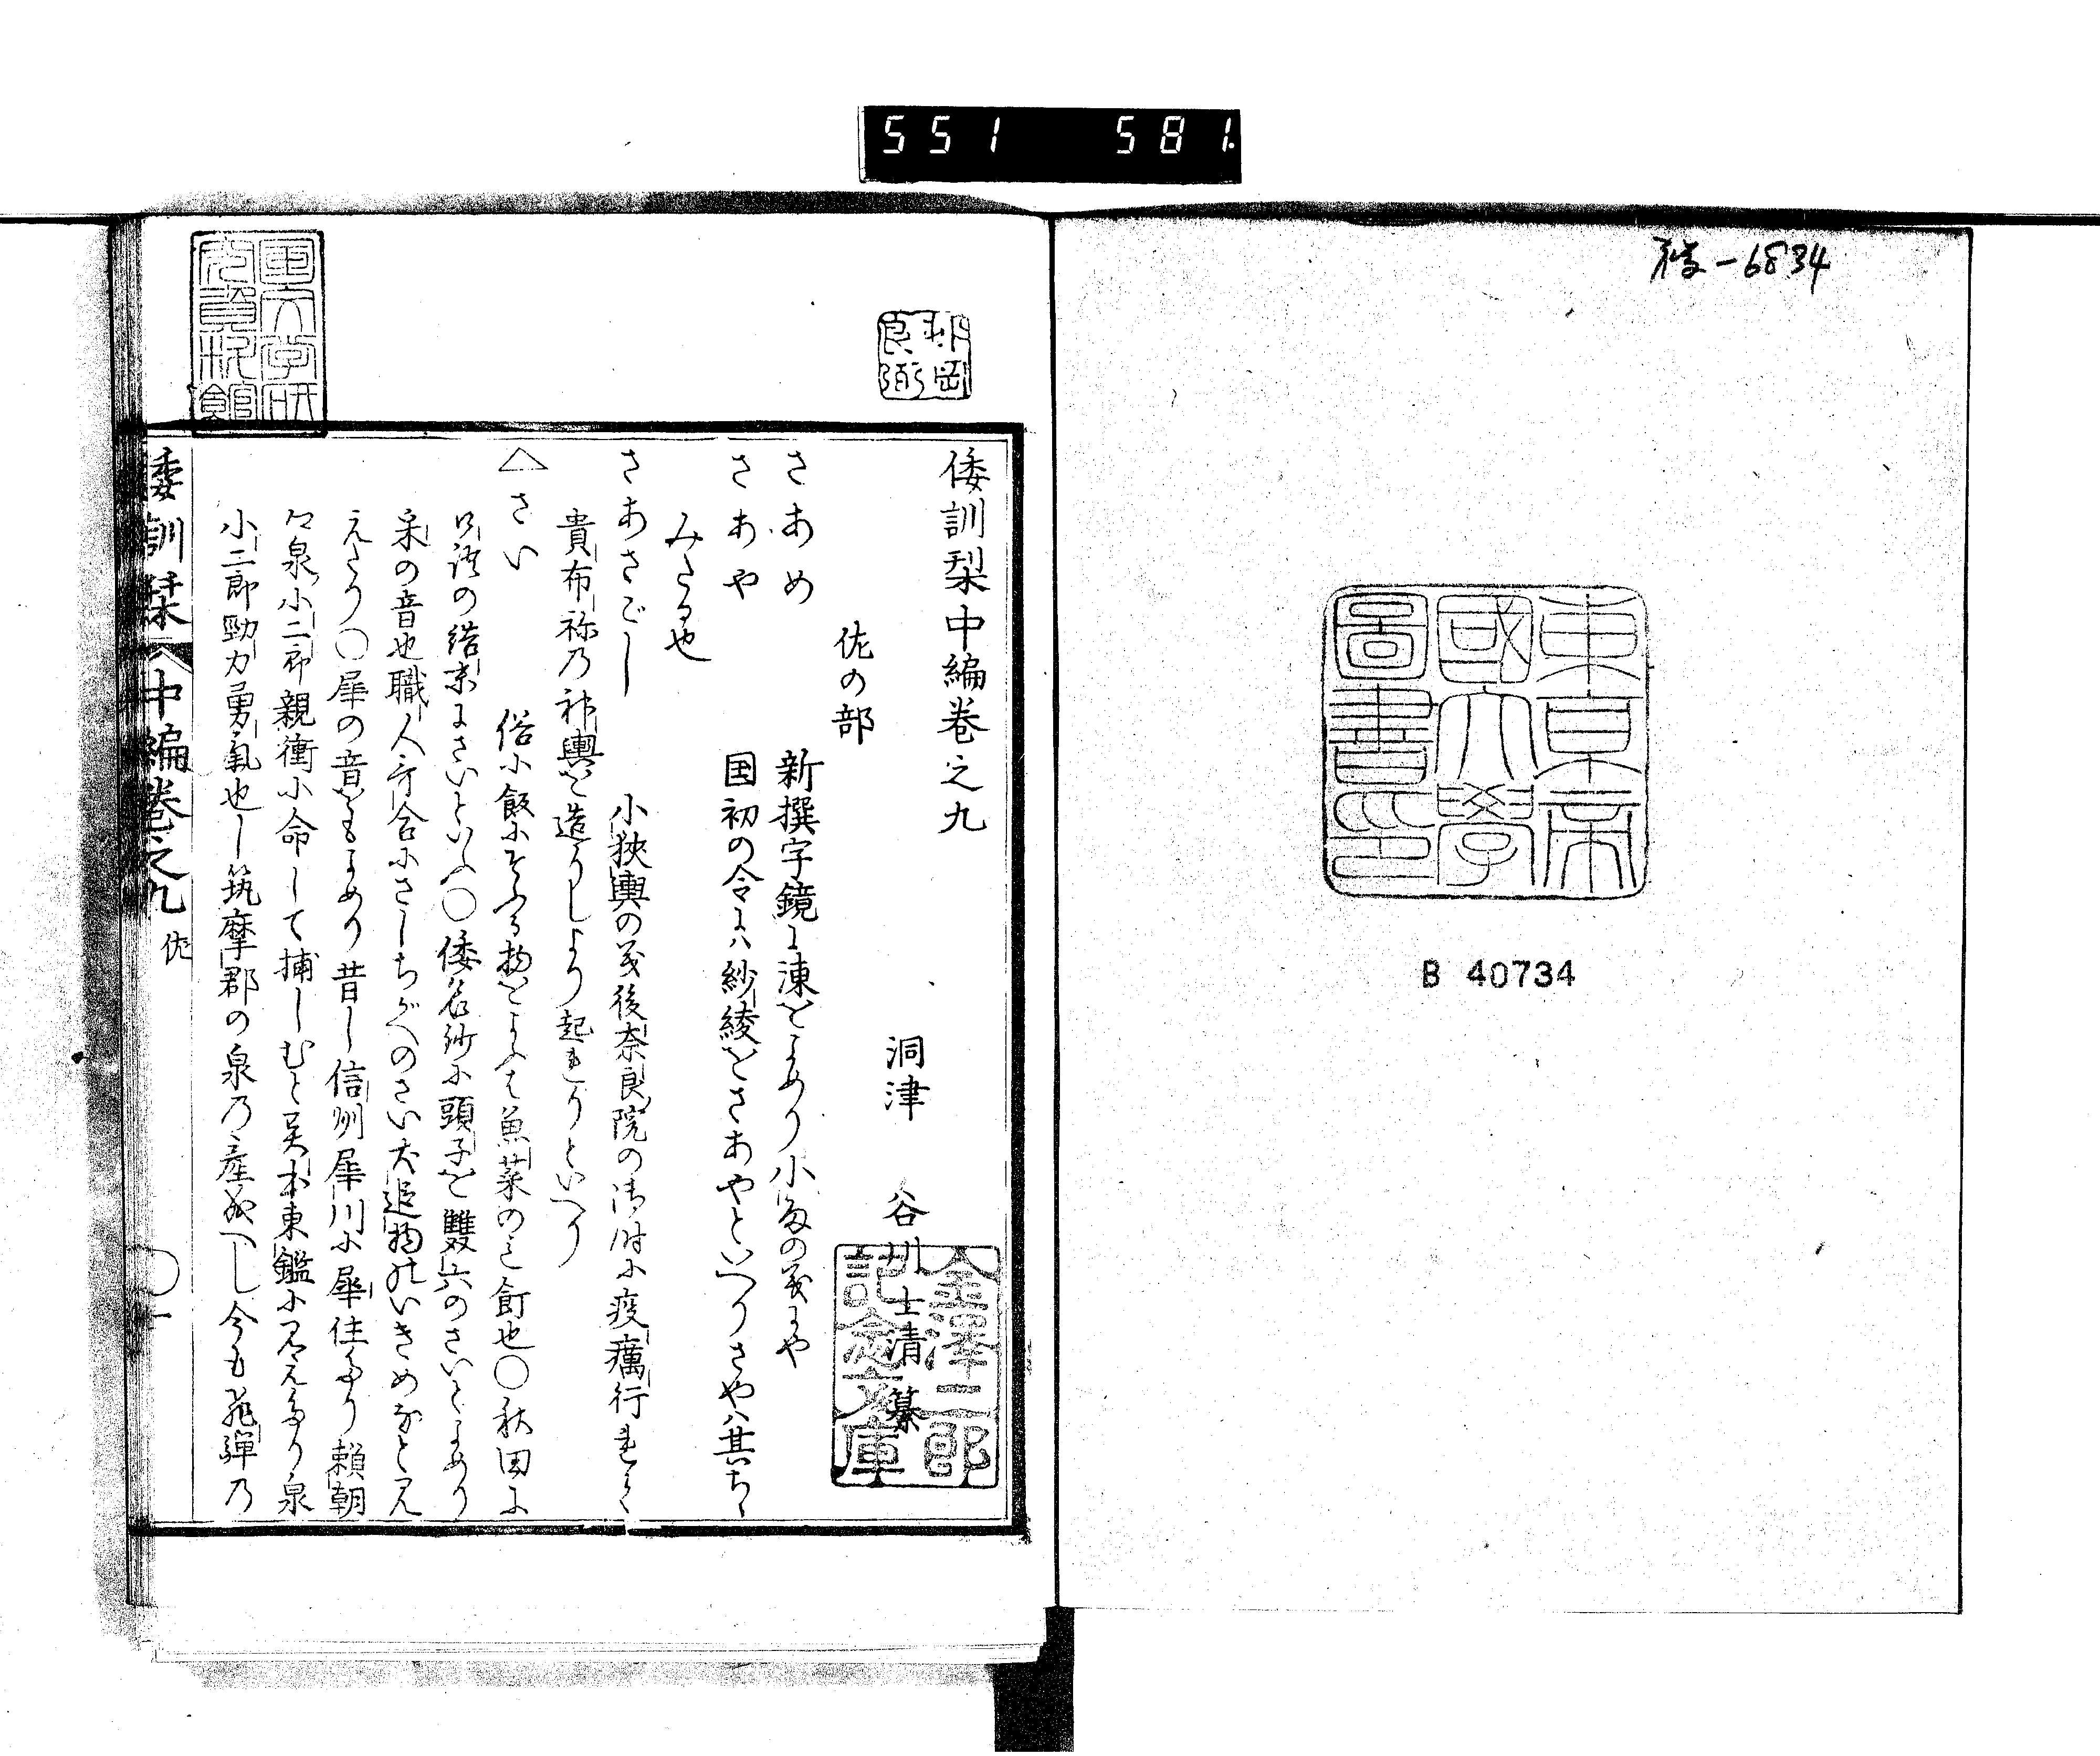 551 581.
硺-6834
東京帝
國大學
圖書印
B 40734
朝岡
良弼
国文学研
究資料館
倭訓栞中編巻之九
洞津 谷川士清 纂
金澤二郎
記念文庫
佐の部
さあめ 新撰字鏡に涷をよめり小雨の義にや
さあや 国初の令には紗綾をさあやといへりさやハ其ちゝ
みたる也
さあさごし 小狭輿の義後奈良院の御時に疫癘行れて
貴布祢乃神輿を造りしより起れりといへり
△さい 俗に飯にそふる物をよふは魚菜のミ飣也〇秋田に
口語の結末にさいといふ〇倭名鈔に頭子を雙六のさいとよめり
采の音也職人歌合にさしちがへのさい犬追物のいきめなと見
えたり〇犀の音をもよめり昔し信州犀川に犀住たり頼朝
公泉小二郎親衡に命して捕しむと異本東鑑に見えたり泉
小二郎勁力勇氣也し筑摩郡の泉乃産成へし今も飛騨乃
倭訓栞 中編巻之九 佐 〇一